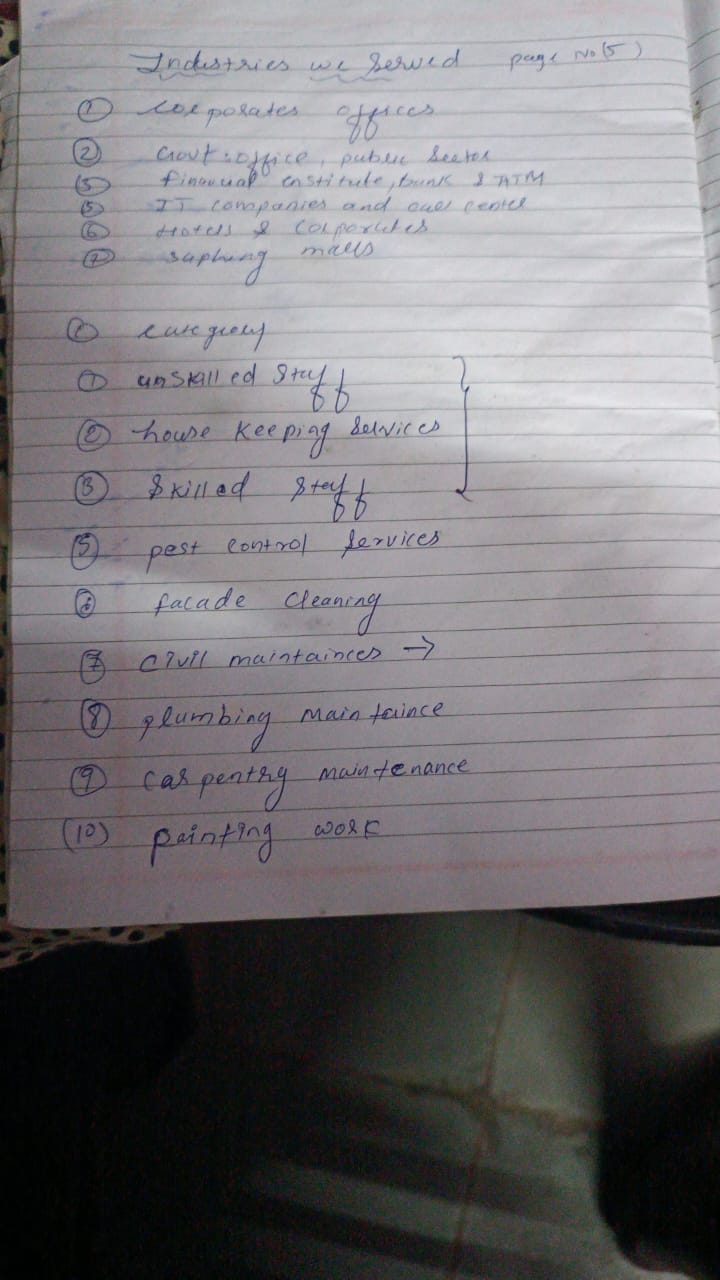 Industries we Served page No (5)
① corporates offices
② Govt. office, public Sector
③ financial institute, bank & ATM
⑤ IT companies and call center
⑥ Hotels & Corporates
⑦ malls
unskilled Staff
② house keeping Services
③ Skilled Staff
⑤ pest control Services
⑥ facade cleaning
⑦ civil maintainces →
⑧ plumbing maintaince
⑨ carpentry maintenance
(10) painting work